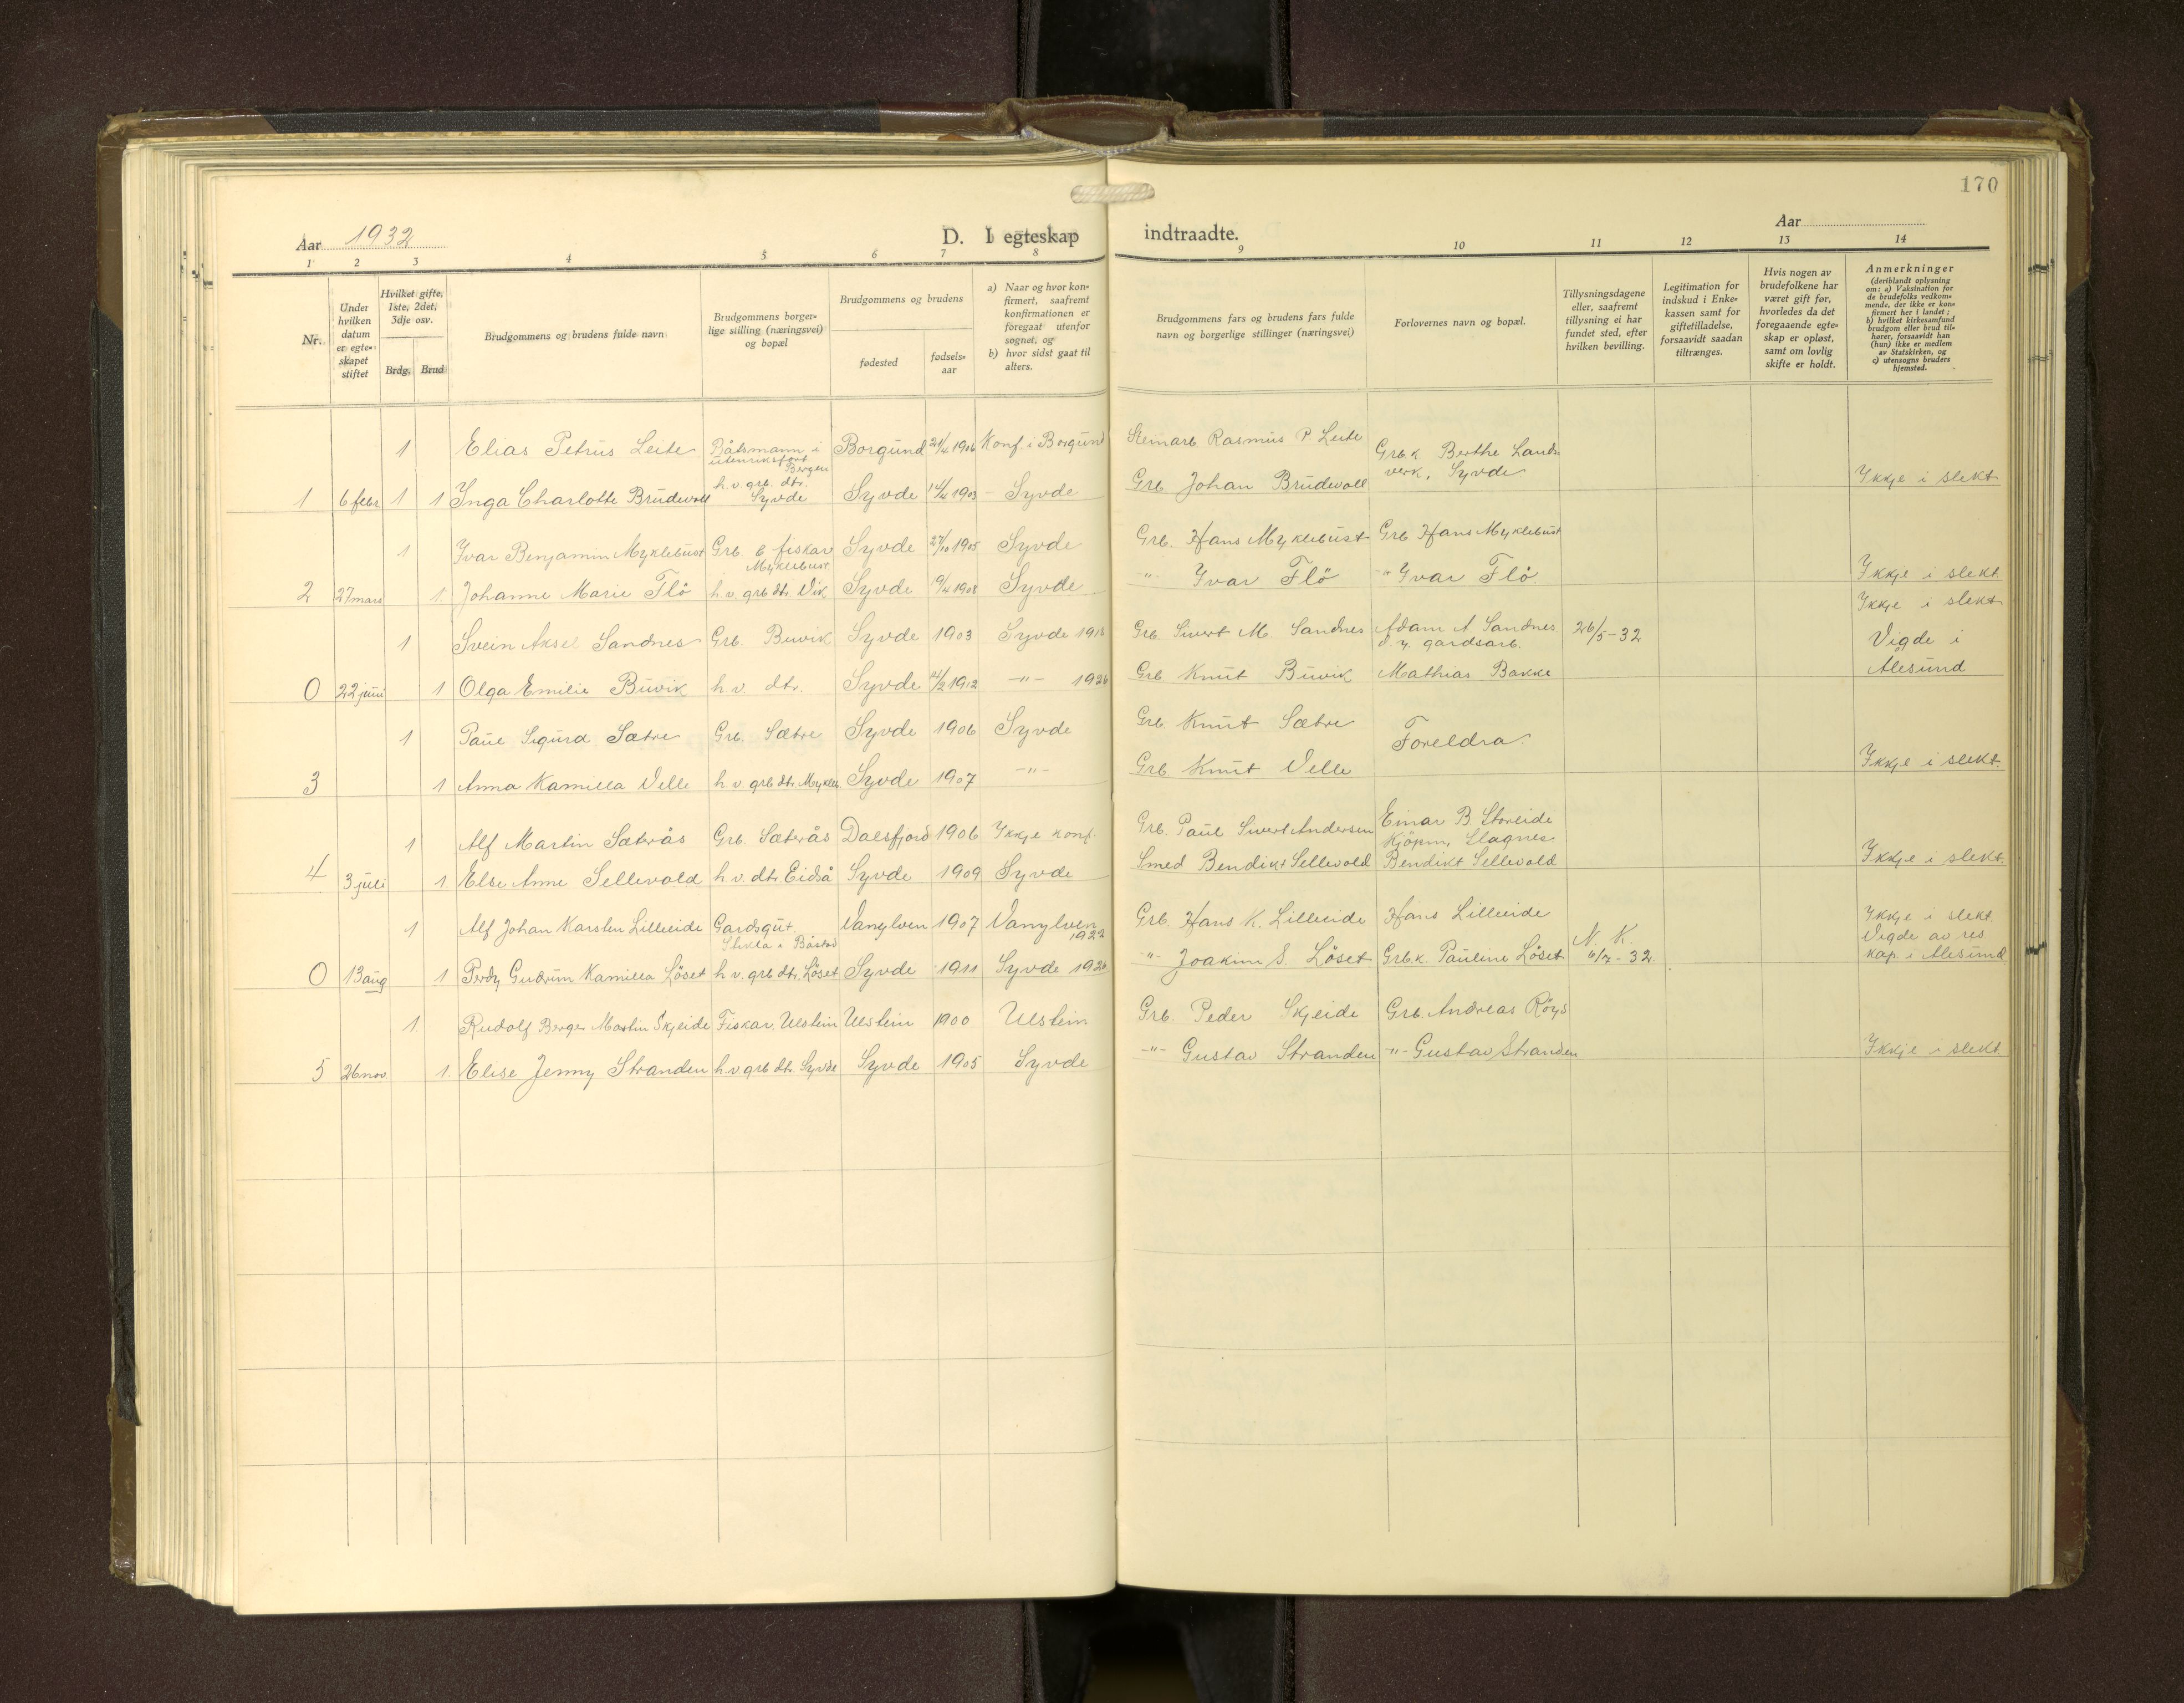 170
Aar 1932
D. I egteskap indtraadte.
Aar
1 2 3 4 5 6 7 8 9 10 11 12 13 14
Nr.
Under
hvilken
datum
er egte-
skapet
stiftet
Hvilket gifte,
1ste, 2det,
3dje osv.
Brdg. Brud
Brudgommens og brudens fulde navn
Brudgommens borger-
lige stilling (næringsvei)
og bopæl
Brudgommens og brudens
fødested
fødsels-
aar
a) Naar og hvor kon-
firmert, saafremt
konfirmationen er
foregaat utenfor
sognet, og
b) hvor sidst gaat til
alters.
Brudgommens fars og brudens fars fulde
navn og borgerlige stillinger (næringsvei)
Forlovernes navn og bopæl.
Tillysningsdagene
eller, saafremt
tillysning ei har
fundet sted, efter
hvilken bevilling.
Legitimation for
indskud i Enke-
kassen samt for
giftetilladelse,
forsaavidt saadan
tiltrænges.
Hvis nogen av
brudefolkene har
været gift før,
hvorledes da det
foregaaende egte-
skap er opløst,
samt om lovlig
skifte er holdt.
Anmerkninger
(deriblandt oplysning
om: a) Vaksination for
de brudefolks vedkom-
mende, der ikke er kon-
firmert her i landet;
b) hvilket kirkesamfund
brudgom eller brud til-
hører, forsaavidt han
(hun) ikke er medlem
av Statskirken, og
c) utensogns bruders
hjemsted.
1 Elias Petrus Leite Båtsmann i utenriksfart Bergen Borgund 21/4 1906 Konf. i Borgund Steinarb. Rasmus P Leite Grb.k Berthe Landverk, Syvde
1 6 febr 1 1 Inga Charlotte Brudevoll h.v. grb. dtr. Syvde Syvde 14/4 1903 - Syvde Grb Johan Brudevoll Ikkje i slekt
1 Ivar Benjamin Myklebust Grb & fiskar Myklebust Syvde 27/10 1905 Syvde Grb. Hans Myklebust Grb Hans Myklebust
2 27 mars 1. Johanne Marie Flö h.v. grb dtr. Vik Syvde 9/4 1908 Syvde -"- Ivar Flö -"- Ivar Flö Ikkje i slekt
1 Svein Aksel Sandnes Grb. Buvik Syvde 1903 Syvde 1918 Grb. Sivert M. Sandnes Adam A Sandnes d.y. gardsarb. 26/5-32 Ikkje i slekt
0 22 juni 1 Olga Emilie Buvik h.v. dtr. Syvde 1912 -"- 1926 Grb Knut Buvik Mathias Bakke Vigde i Ålesund
1 Paul Sigurd Sætre Grb. Sætre Syvde 1906 Syvde Grb Knut Sætre Foreldra
3 1 Anna Kamilla Velle h.v. grb dtr. Mykleb. Syvde 1907 -"- Grb. Knut Velle Ikkje i slekt.
1 Alf Martin Sæterås Grb. Sæterås Dalsfjord 1906 Ikkje konf. Grb. Paul Sivert Andersen Einar B. Storeide Kjöpm. Slagnes
4 3 juli 1. Else Anne Sellevold h.v. dtr. Eidså Syvde 1909 Syvde Smed Bendikt Sellevold Bendikt Sellevold Ikkje i slekt.
1 Alf Johan Karsten Lilleeide Gardsgut Båstad Vanylven 1907 Vanylven 1922 Grb. Hans K. Lilleeide Hans Lilleeide Ikkje i slekt.
0 13 aug 1 Perdy Gudrun Kamilla Löset h.v. grb dtr. Löset Syvde 1911 Syvde 1926 -"- Joakim S. Löset Grb.k. Pauline Löset N.K. 6/7-32 Vigde av res kap. i Ålesund
1. Rudolf Berger Martin Skjeide Fiskar, Ulstein Ulstein 1900 Ulstein Grb. Peder Skjeide Grb. Andreas Röys
5 26 nov. 1. Elise Jenny Stranden h.v. grb dtr. Syvde Syvde 1905 Syvde -"- Gustav Stranden -"- Gustav Stranden Ikkje i slekt